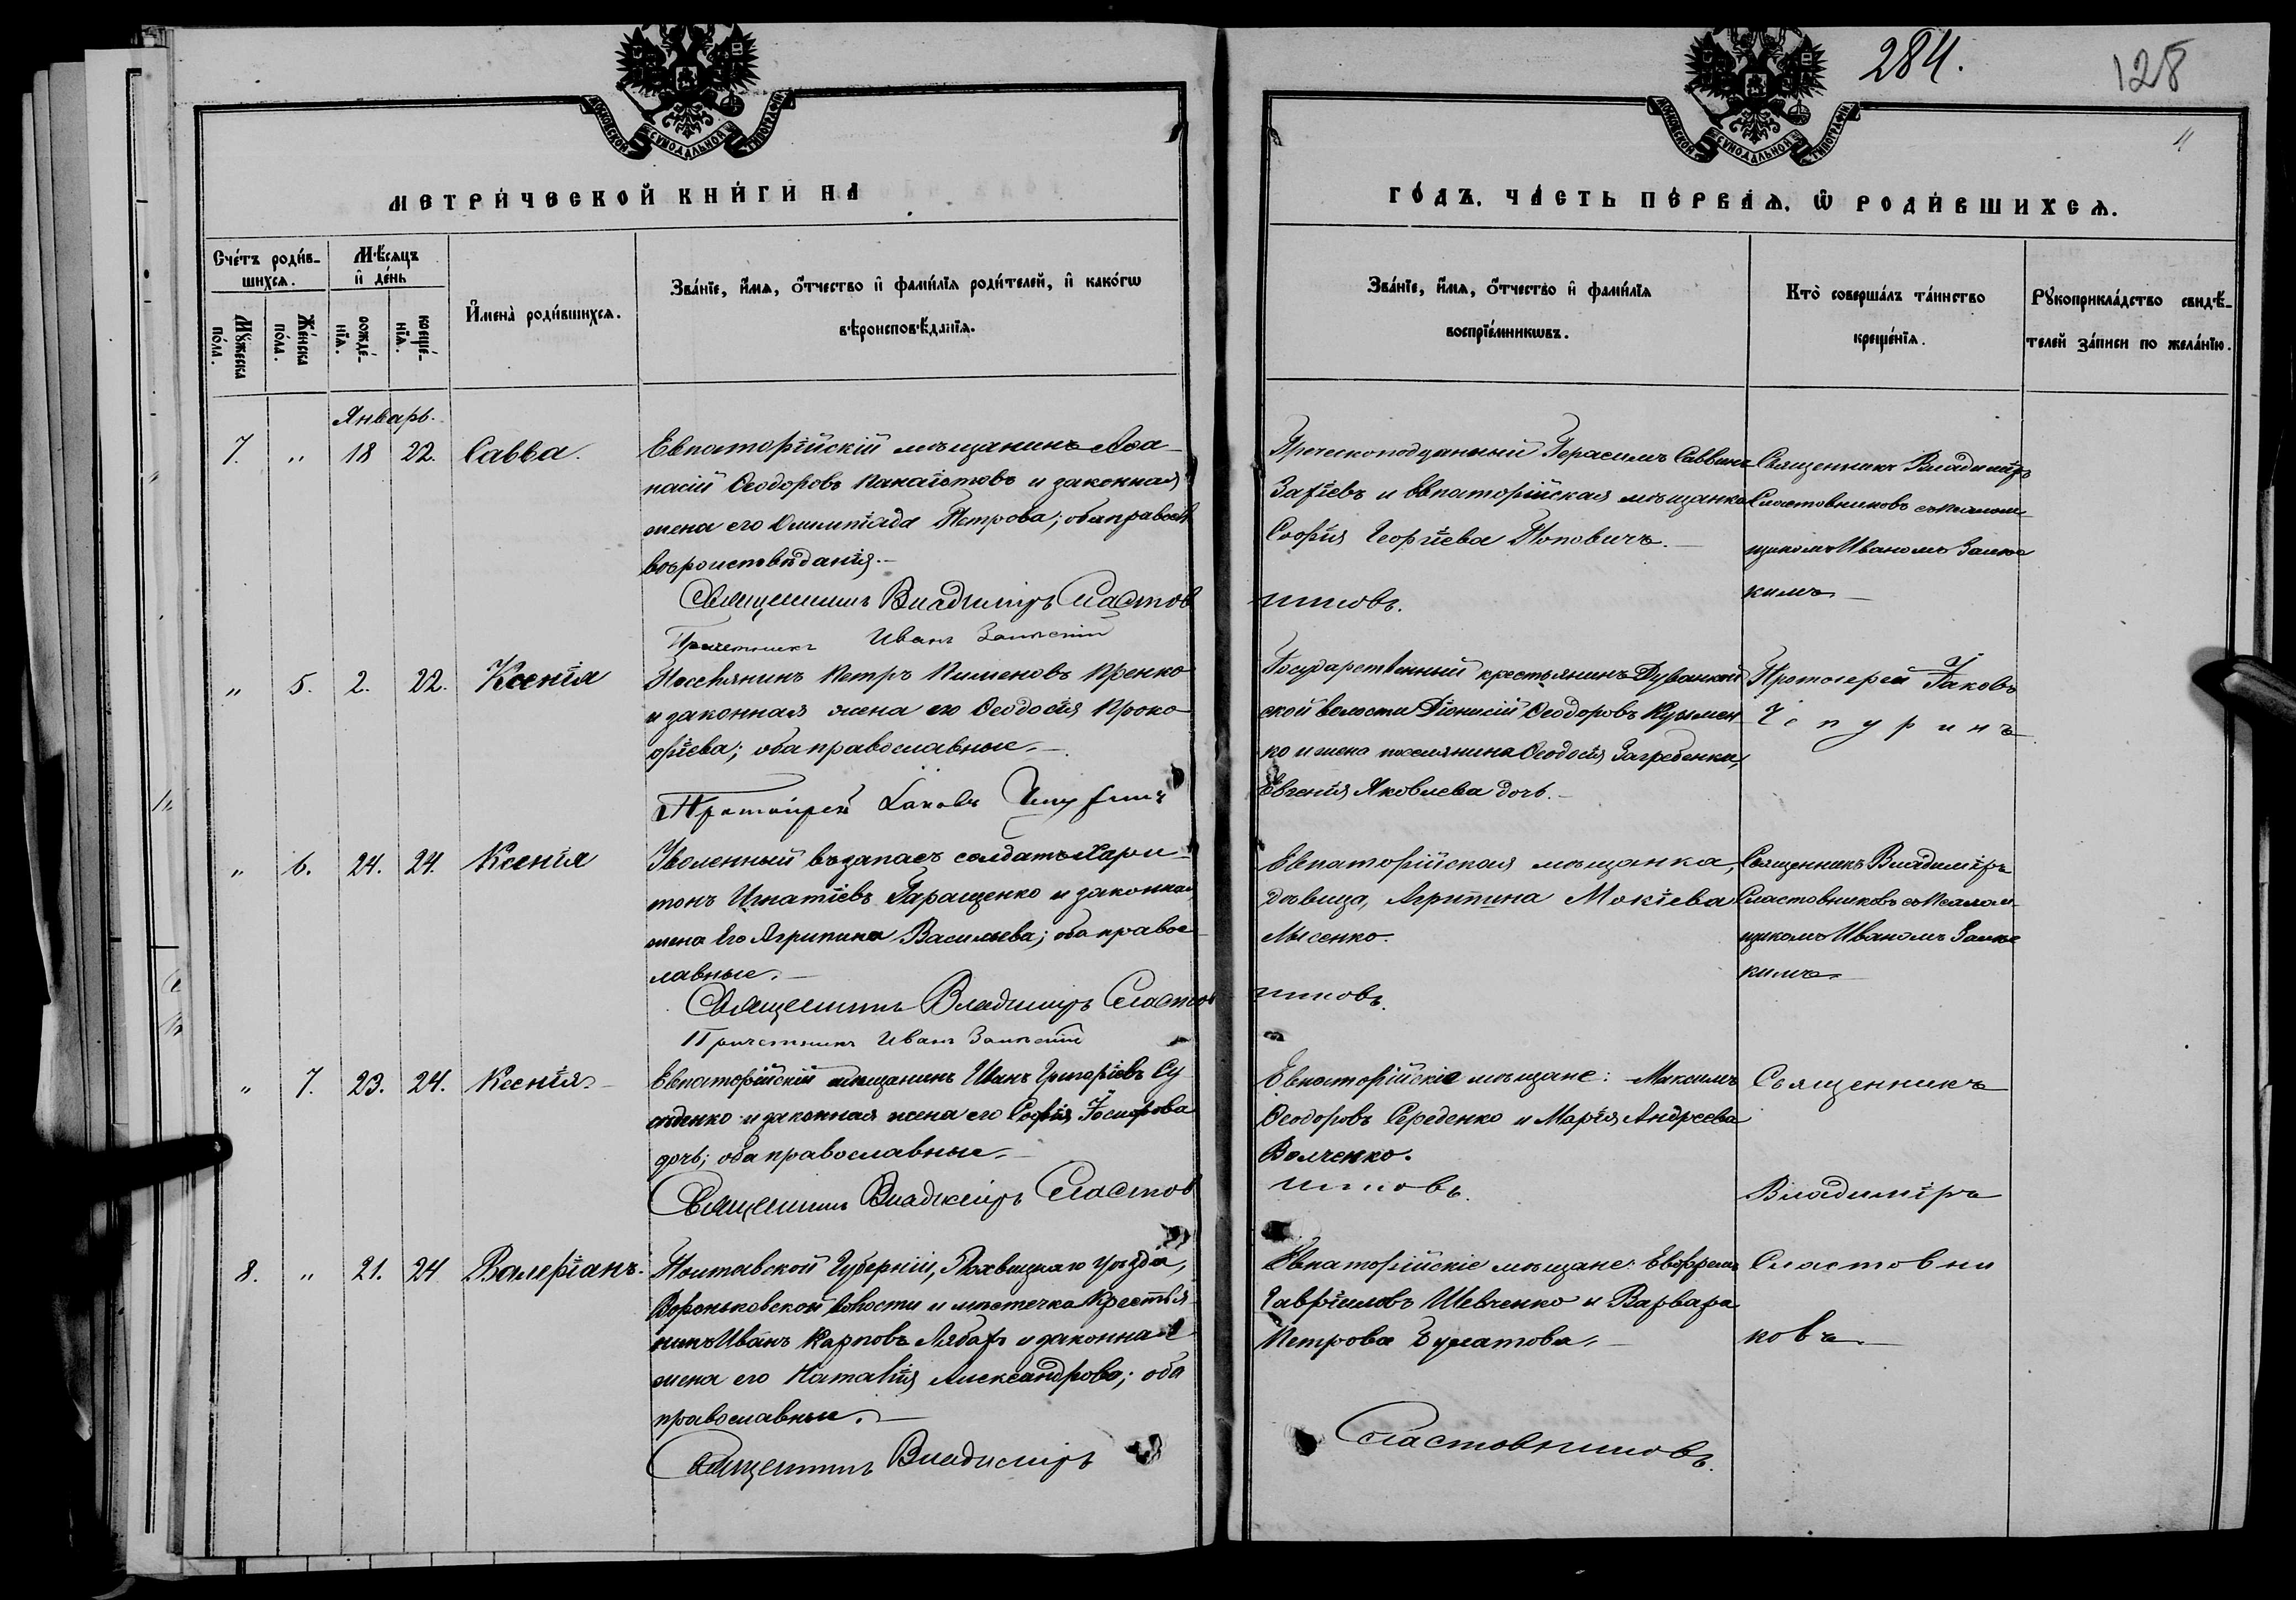 284.
128
МОСКОВСКОЙ СУНОДАЛЬНОЙ ТИПОГРАФІИ
МОСКОВСКОЙ СУНОДАЛЬНОЙ ТИПОГРАФІИ
МЕТРИ́ЧЕСКОЙ КНИ́ГИ НА
ГО́ДЪ. ЧА́СТЬ ПЕ́РВАЯ. Ѿ РОДИ́ВШИХСЯ.
Сче́тъ роди́в-
шихся.
Мѣ́сяцъ
и де́нь
Му́жеска по́ла.
Же́нска по́ла.
рожде́-
нїя.
креще́-
нїя.
Имена̀ роди́вшихся.
Зва́нїе, и́мя, о́тчество и фами́лїя роди́телей, и како́гѡ
вѣроисповѣ́данїя.
Зва́нїе, и́мя, о́тчество и фами́лїя
воспрїе́мникѡвъ.
Кто̀ соверша́лъ та́инство
креще́нїя.
Рукоприкла́дство свидѣ́-
телей за́писи по жела́нїю.
Январь.
7. „ 18 22. Савва.
Евпаторійскій мѣщанинъ Аѳа-
насій Ѳеодоровъ Панаіотовъ и законная
жена его Олимпіада Петрова; оба правосл.
вѣроисповѣданія.
Священникъ Владиміръ Сластов
Причетникъ Иванъ
Греческоподданный Герасимъ Саввинъ
и Евпаторійская мѣщанка
Софія Георгіева Поповичъ.
никовъ.
Священникъ Владиміръ
Сластовниковъ съ Псаломъ
щикомъ Иваномъ
кимъ
„ 5. 2. 22. Ксенія
Поселянинъ Петръ Пименовъ
и законная жена его Ѳеодосія Проко
фіева; оба православные.
Протоіерей Іаковъ Чепуринъ
Государственный крестьянинъ
ской волости Діонисій Ѳеодоровъ Кузмен
ко и жена поселянина Ѳеодосія Загребенки,
Евгенія Яковлева дочь.
Протоіерей Іаковъ
Чепуринъ
„ 6. 24. 24. Ксенія
Уволенный въ запасъ солдатъ Хари-
тонъ Игнатіевъ Паращенко и законная
жена его Агрипина Васильева; оба правос
лавные.
Священникъ Владиміръ Сластов
Причетникъ Иванъ
Евпаторійская мѣщанка,
дѣвица, Агрипина Мокіева
Лысенко.
никовъ.
Священникъ Владиміръ
Сластовниковъ съ Псалом
щикомъ Иваномъ
кимъ
„ 7. 23. 24. Ксенія
Евпаторійскій мѣщанинъ Иванъ Григоріевъ Се
реденко и законная жена его Софія
дочь; оба православные.
Священникъ Владиміръ Сластов
Евпаторійскіе мѣщане: Максимъ
Ѳеодоровъ Середенко и Марія Андреева
Волченко.
никовъ.
Священникъ
Владиміръ
8. „ 21. 24 Валеріанъ.
Полтавской Губерніи, Лохвицкаго уѣзда,
Вороньковской волости и мѣстечка Крестья
нинъ Иванъ Карповъ и законная
жена его Наталія Александрова; оба
православные.
Священникъ Владиміръ
Евпаторійскіе мѣщане:
Гавріиловъ Шевченко и Варвара
Петрова Булатова.
Сластовниковъ.
Сластовни
ковъ.